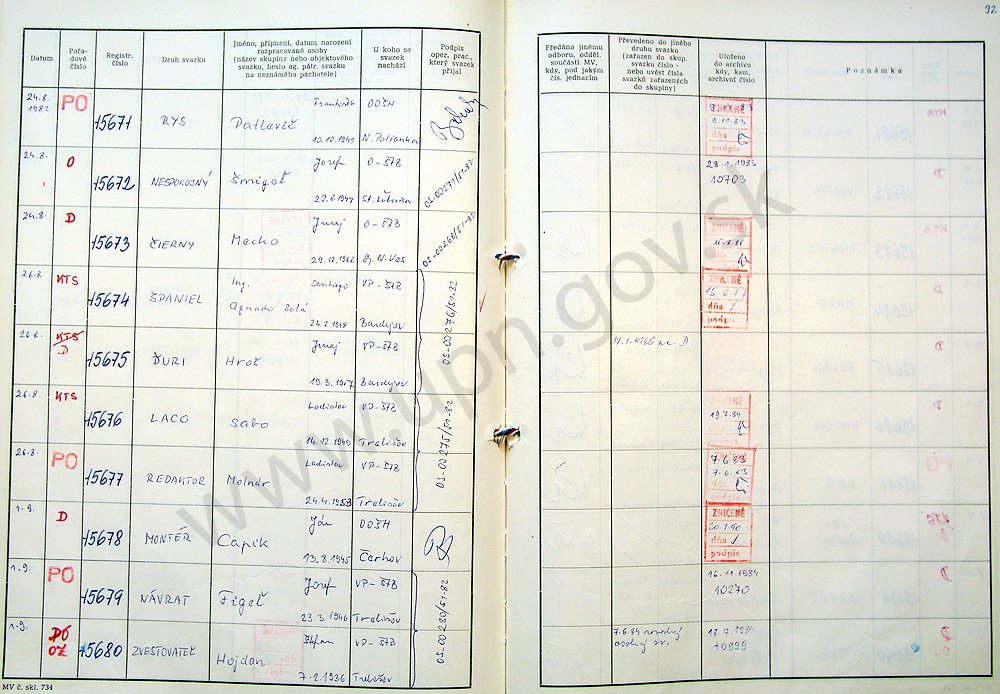 32
Datum
Pořa-
dové
číslo
Registr.
číslo
Druh svazku
Jméno, příjmení, datum narození
rozpracované osoby
(název skupiny nebo objektového
svazku, heslo ag. pátr. svazku
na neznámého pachatele)
U koho se
svazek
nachází
Podpis
oper. prac.,
který svazek
přijal
Předáno jinému
odboru, odděl.
součásti MV,
kdy, pod jakým
čís. jednacím
Převedeno do jiného
druhu svazku
(zařazen do skup.
svazku číslo -
nebo uvést čísla
svazků zařazených
do skupiny)
Uloženo
do archivu
kdy, kam,
archivní číslo
Poznámka
24.8.
1982
PO
15671
RYS
František
Patlevič
10.10.1941
OOŠH
N. Polianka
9.11.83
dňa
podpis
24.8.
O
15672
NESPOKOJNÝ
Jozef
Šmigaľ
22.8.1944
O-ŠTB
St. Ľubovňa
OS-00271/S1-82
28.1.1983
10703
24.8.
D
15673
ČIERNY
Juraj
Macko
O-ŠTB
Sp. N. Ves
OS-00268/S1-82
ZNIČENÉ
dňa
26.8.
KTS
15674
ŠPANIEL
Ing. Santiago
Aguado Solá
24.2.1948
VP-ŠTB
Bardejov
OS-00276/S1-82
ZNIČENÉ
dňa
podpis
26.8.
KTS
D
15675
ĎURI
Juraj
Hroš
19.3.1957
VP-ŠTB
Bardejov
17.1.1986 na D
26.8.
KTS
15676
LACO
Ladislav
Sabo
14.12.1949
VP-ŠTB
Trebišov
OS-00275/S1-82
ZNIČENÉ
19.7.84
26.8.
PO
15677
REDAKTOR
Ladislav
Molnár
24.4.1953
VP-ŠTB
Trebišov
7.6.83
7.6.83
dňa
podpis
1.9.
D
15678
MONTÉR
Ján
Capík
13.8.1945
OOŠH
Čerhov
ZNIČENÉ
30.1.90
dňa
podpis
1.9.
PO
15679
NÁVRAT
Jozef
Figeľ
23.3.1946
VP-ŠTB
Trebišov
OS-00280/S1-82
16.11.1984
10270
1.9.
OZ
15680
ZVESTOVATEĽ
Štefan
Hojdan
7.2.1936
VP-ŠTB
Trebišov
7.6.84
18.7.1984
10999
MV č. skl. 734
www.upn.gov.sk